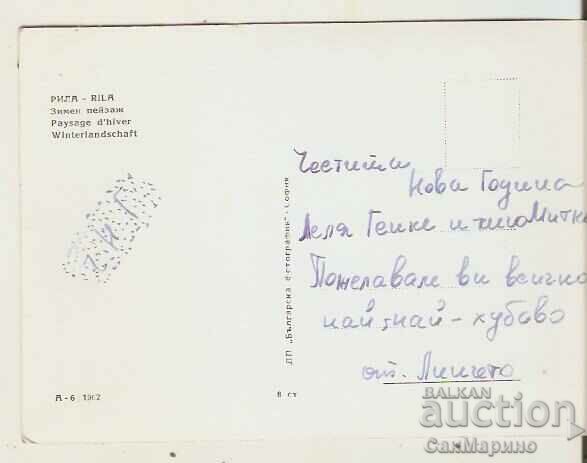 РИЛА - RILA
Зимен пейзаж
Paysage d'hiver
Winterlandschaft
ЧНГ
А-6 1962
ДП „Българска фотография“ - София
8 ст
Честита
Нова Година
Леля Генке и чичо Митко
Пожелавам ви всичко
най, най - хубаво
от Линчето
BALKAN
auction
СанМарино